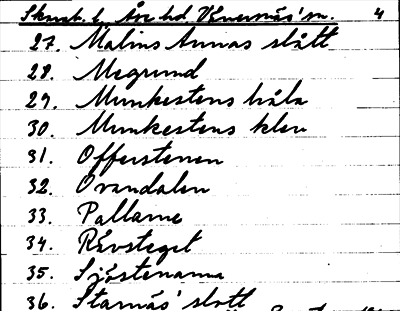 4
27. Malins Annas slått
28. Megrund
29. Munkestens håla
30. Munkestens klev
31. Offerstenen
32. Ovandalen
33. Pallarne
34. Rävsteget
35. Sjöstenarna
36. Starnäs' slott